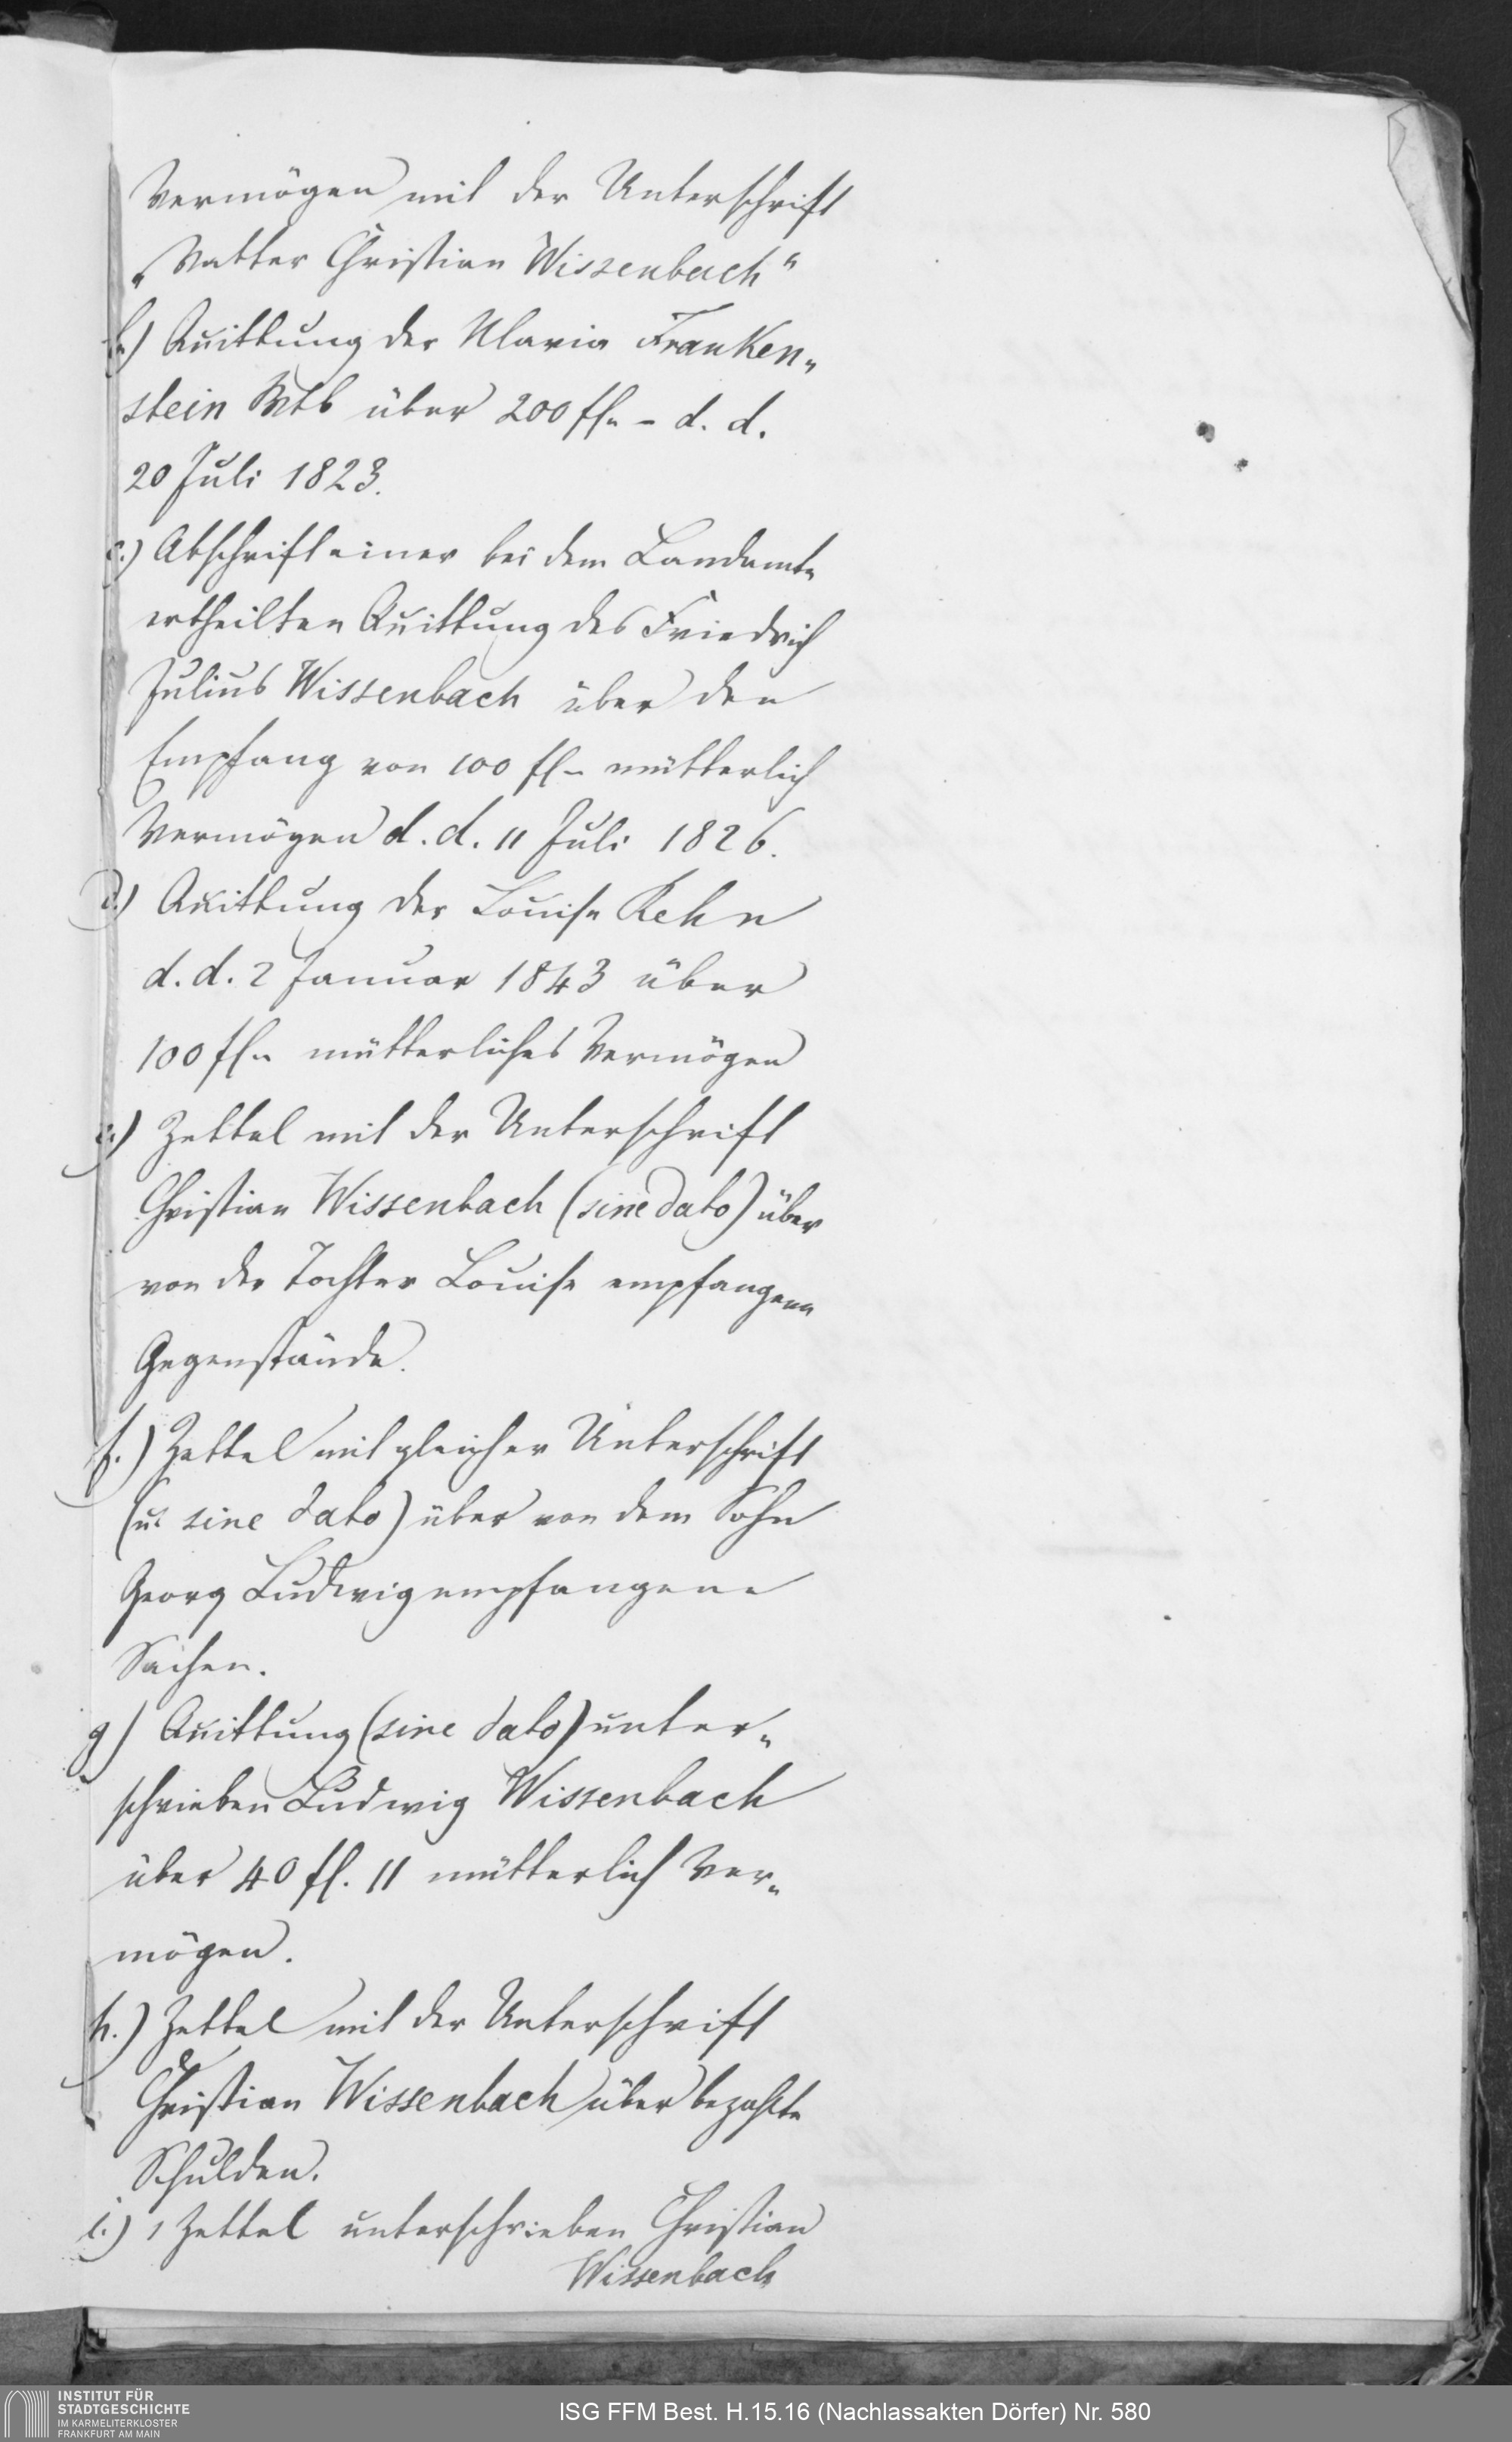 Vermögen mit der Unterschrift
„Vatter Christian Wissenbach“
b.) Quittung der Maria Franken„
stein Wtb über 200 fl. – d. d.
20 Juli 1823.
c.) Abschrift einer bei dem Landamte
ertheilten Quittung des Friedrich
Julius Wissenbach über den
Empfang von 100 fl. – mütterlich
Vermögen d. d. 11 Juli 1826.
d.) Quittung der Louise Rehn
d. d. 2 Januar 1843 über
100 fl. – mütterliches Vermögen
e.) Zettel mit der Unterschrift
Christian Wissenbach (sine dato) über
von der Tochter Louise empfangene
Gegenstände.
f.) Zettel mit gleicher Unterschrift
(u. sine dato) über von dem Sohn
Georg Ludwig empfangene
Sachen.
g) Quittung (sine dato) unter„
schrieben Ludwig Wissenbach
über 40 fl. 11 mütterlich Ver„
mögen.
h.) Zettel mit der Unterschrift
Christian Wissenbach über bezahlte
Schulden.
i.) 1 Zettel unterschrieben Christian
Wissenbach
INSTITUT FÜR
STADTGESCHICHTE
IM KARMELITERKLOSTER
FRANKFURT AM MAIN
ISG FFM Best. H.15.16 (Nachlassakten Dörfer) Nr. 580